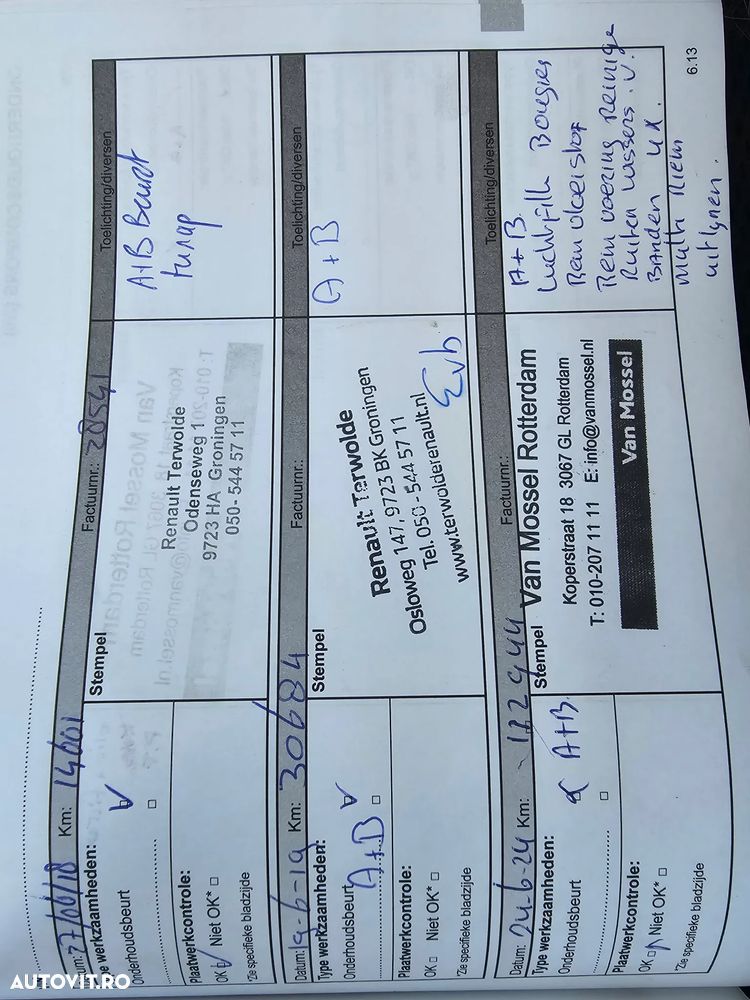 Datum: 27/06/18 Km: 14001 Factuurnr.: 28541 Toelichting/diversen
Type werkzaamheden:
Stempel
A+B Beurt
Onderhoudsbeurt
Renault Terwolde
Odenseweg 1
9723 HA Groningen
050- 544 57 11
Plaatwerkcontrole:
OK Niet OK*
*Zie specifieke bladzijde
Datum: 19-6-19 Km: 30684 Factuurnr.: Toelichting/diversen
Type werkzaamheden:
Stempel
A+B
Onderhoudsbeurt
A+B
Renault Terwolde
Osloweg 147, 9723 BK Groningen
Tel. 050 - 544 57 11
www.terwolderenault.nl
Plaatwerkcontrole:
OK Niet OK*
*Zie specifieke bladzijde
Datum: 24-6-24 Km: 122944 Factuurnr.: Toelichting/diversen
Type werkzaamheden:
Stempel
A+B
Onderhoudsbeurt
A+B
Van Mossel Rotterdam
Koperstraat 18 3067 GL Rotterdam
T: 010-207 11 11 E: info@vanmossel.nl
Van Mossel
Luchtfilter Bougies
Remvloeistof
Rem voering Reinige
Ruiten wissers .v.
Banden 4x.
Multi Riem
uitlijnen.
Plaatwerkcontrole:
OK Niet OK*
*Zie specifieke bladzijde
6.13
AUTOVIT.RO